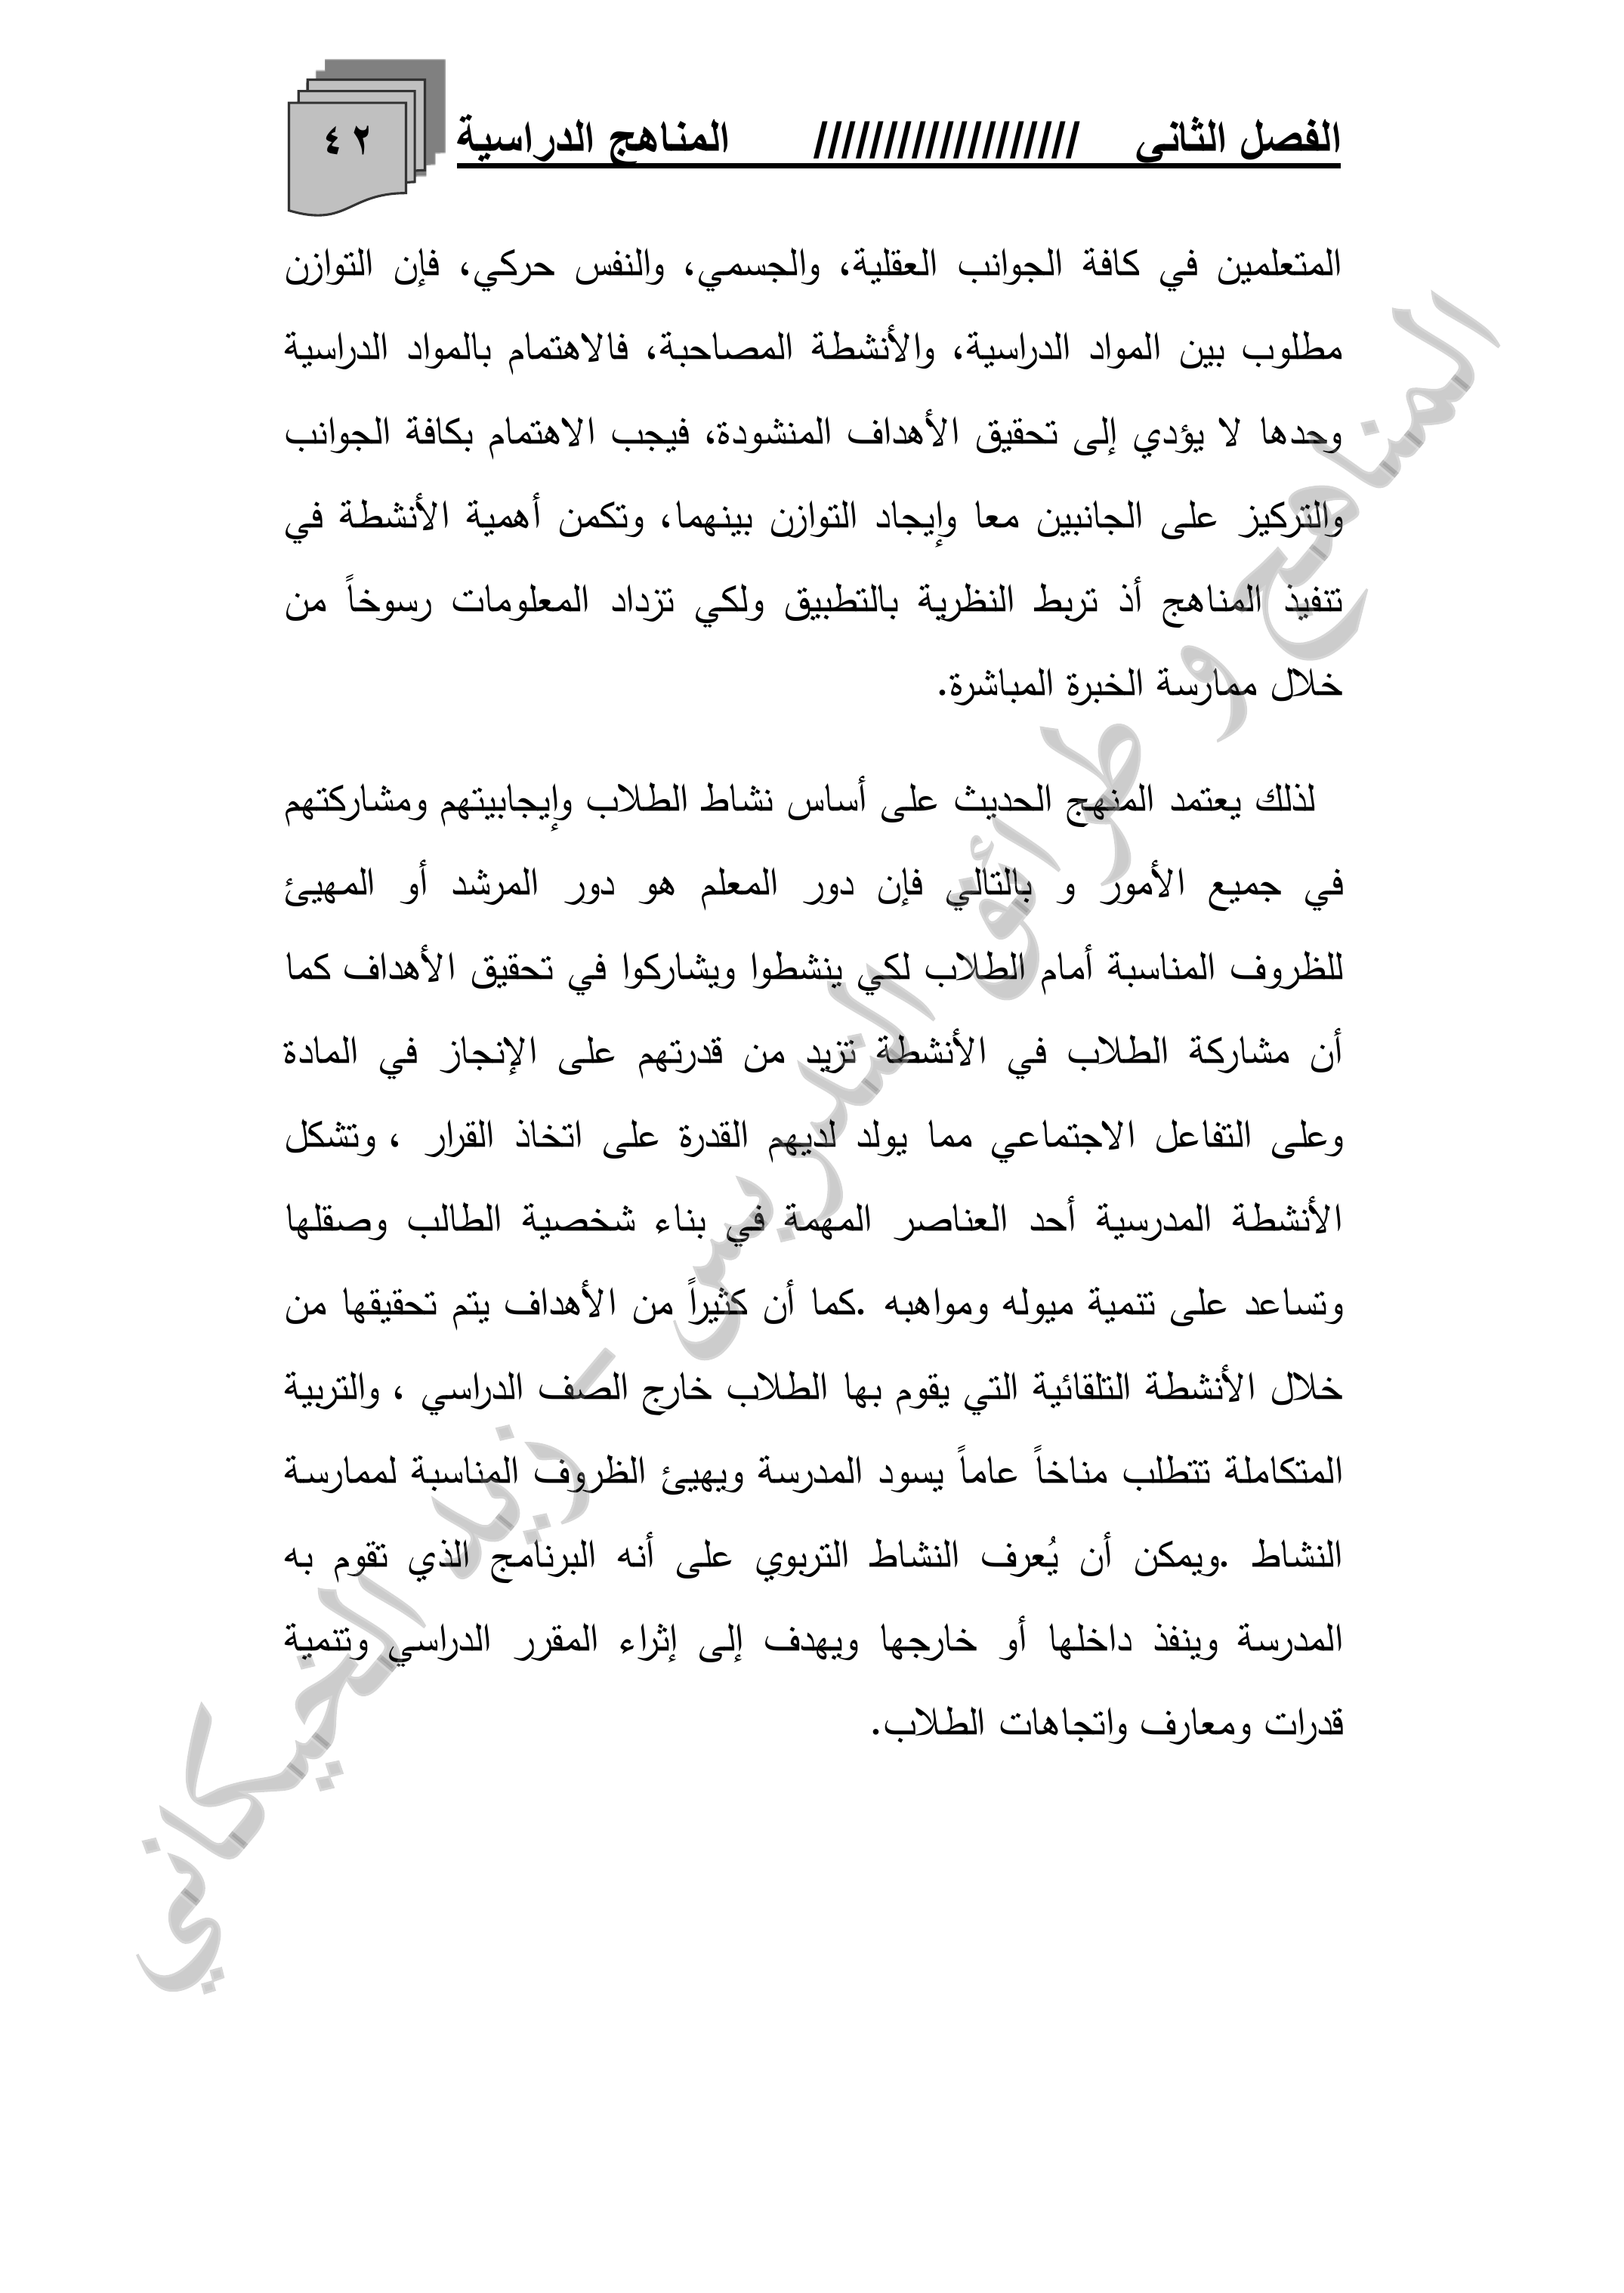 الفصل الثاني /////////////////// المناهج الدراسية
٤٢
المتعلمين في كافة الجوانب العقلية، والجسمي، والنفس حركي، فإن التوازن
مطلوب بين المواد الدراسية، والأنشطة المصاحبة، فالاهتمام بالمواد الدراسية
وحدها لا يؤدي إلى تحقيق الأهداف المنشودة، فيجب الاهتمام بكافة الجوانب
والتركيز على الجانبين معا وإيجاد التوازن بينهما، وتكمن أهمية الأنشطة في
تنفيذ المناهج أذ تربط النظرية بالتطبيق ولكي تزداد المعلومات رسوخاً من
خلال ممارسة الخبرة المباشرة.
لذلك يعتمد المنهج الحديث على أساس نشاط الطلاب وإيجابيتهم ومشاركتهم
في جميع الأمور و بالتالي فإن دور المعلم هو دور المرشد أو المهيئ
للظروف المناسبة أمام الطلاب لكي ينشطوا ويشاركوا في تحقيق الأهداف كما
أن مشاركة الطلاب في الأنشطة تزيد من قدرتهم على الإنجاز في المادة
وعلى التفاعل الاجتماعي مما يولد لديهم القدرة على اتخاذ القرار ، وتشكل
الأنشطة المدرسية أحد العناصر المهمة في بناء شخصية الطالب وصقلها
وتساعد على تنمية ميوله ومواهبه .كما أن كثيراً من الأهداف يتم تحقيقها من
خلال الأنشطة التلقائية التي يقوم بها الطلاب خارج الصف الدراسي ، والتربية
المتكاملة تتطلب مناخاً عاماً يسود المدرسة ويهيئ الظروف المناسبة لممارسة
النشاط .ويمكن أن يُعرف النشاط التربوي على أنه البرنامج الذي تقوم به
المدرسة وينفذ داخلها أو خارجها ويهدف إلى إثراء المقرر الدراسي وتنمية
قدرات ومعارف واتجاهات الطلاب.
المناهج و طرائق التدريس – زيد الخيكاني